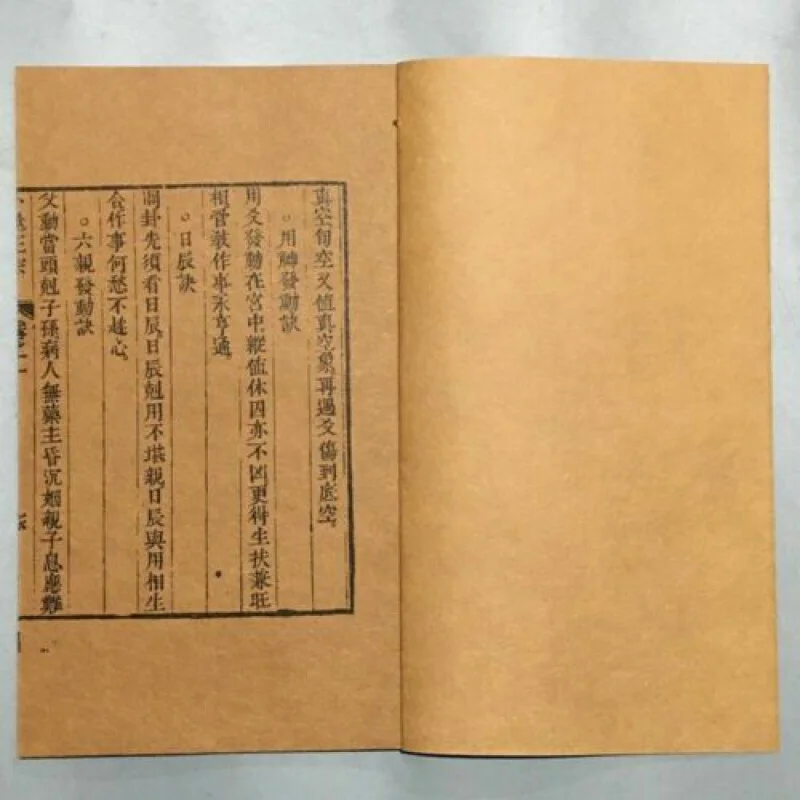 真空旬空爻值真空象再遇爻傷到底空
○用神發動訣
用爻發動在宮中縱值休囚亦不凶更得生扶兼旺
相管教作事永亨通
○日辰訣
問卦先須看日辰日辰剋用不堪親日辰與用相生
合作事何愁不趂心
○六親發動訣
父動當頭剋子孫病人無藥主昏沉姻親子息應難
卜筮正宗 卷之一